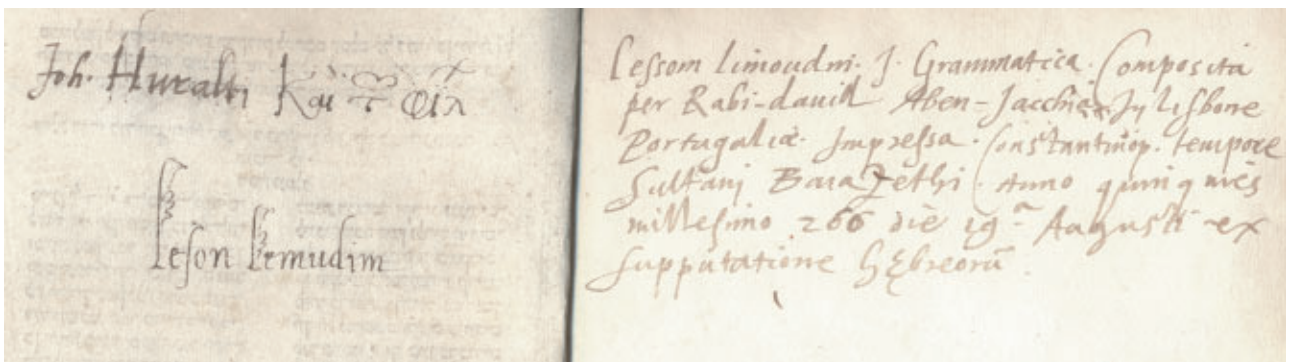 Joh. Huralti Καὶ τ φιλ
Leson Lemudim
Lessom limoudni. J. Grammatica. Composita
per Rabi-david Aben-Jacchia Jn Lisbone
Portugaliæ. Jmpressa. Constantinop. tempore
Sultani Baiazethi. Anno quinquies
millesimo 266 die 19ª Augusti ex
supputatione hębreorũ